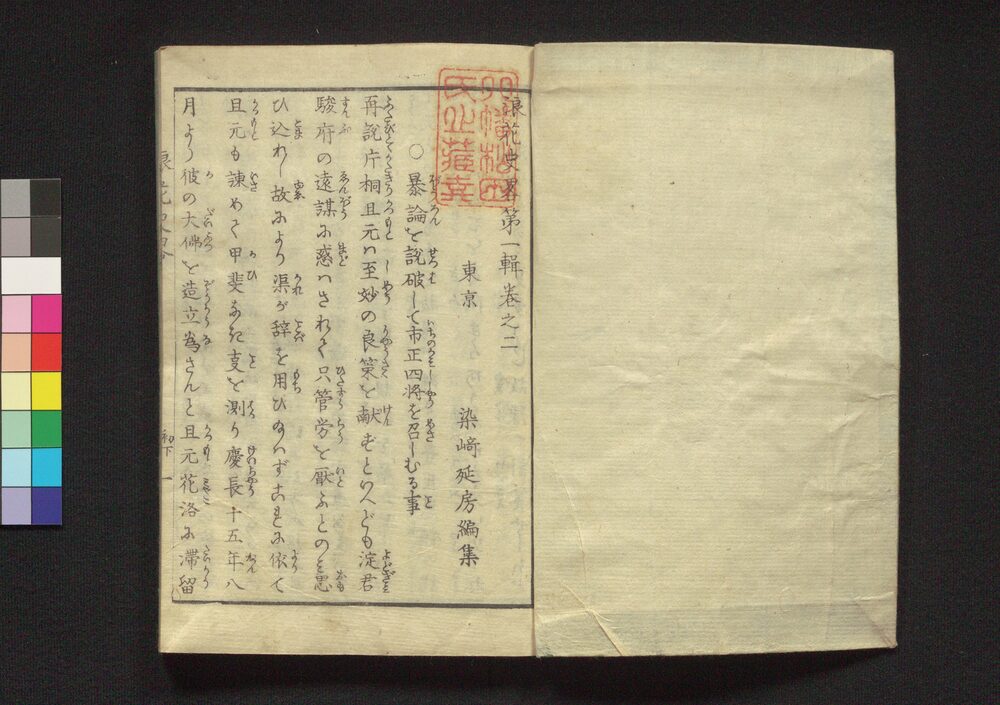 浪花史略第一輯巻之二
東京 染﨑延房編集
○暴論を説破して市正四将を召しむる事
再説片桐且元ハ至妙の良策を献ずといへども淀君
駿府の遠謀に惑ハされて只管労を厭ふとのミ思
ひ込れし故により渠が辞を用ひ給ハず
且元も諫めて甲斐なき支を測り慶長十五年八
月より彼の大佛を造立為さんと且元花洛に滞留
初下 一